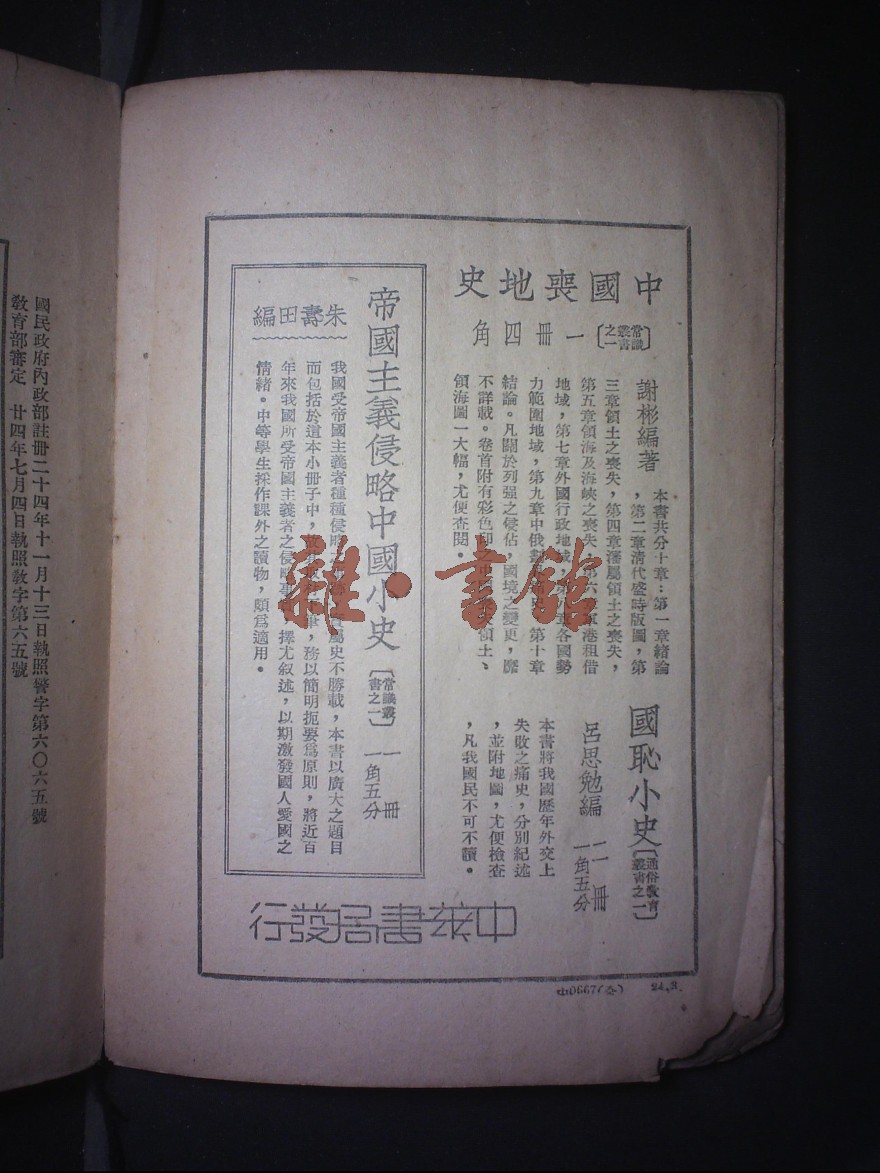 中國喪地史
〔常識叢書之一〕一冊四角
謝彬編著
本書共分十章：第一章緒論
，第二章清代盛時版圖，第
三章領土之喪失，第四章藩屬領土之喪失，
第五章領海及海峽之喪失，第六章軍港租借
地域，第七章外國行政地域，第八章各國勢
力範圍地域，第九章中俄
第十章
結論。凡關於列強之侵佔，國境之變更，靡
不詳載。卷首附有彩色印之中國
領土、
領海圖一大幅，尤便查閱。
國恥小史〔通俗教育叢書之一〕
呂思勉編 二冊 一角五分
本書將我國歷年外交上
失敗之痛史，分別紀述
，並附地圖，尤便檢查
，凡我國民不可不讀。
帝國主義侵略中國小史〔常識叢書之一〕一冊一角五分
朱壽田編
我國受帝國主義者種種侵略
屬史不勝載，本書以廣大之題目
而包括於這本小冊子中，
筆，務以簡明扼要爲原則，將近百
年來我國所受帝國主義者之侵略事
擇尤叙述，以期激發國人愛國之
情緒。中等學生採作課外之讀物，頗爲適用。
中華書局發行
國民政府內政部註冊二十四年十一月十三日執照警字第六〇六五號
教育部審定 廿四年七月四日執照教字第六五號
雜·書館